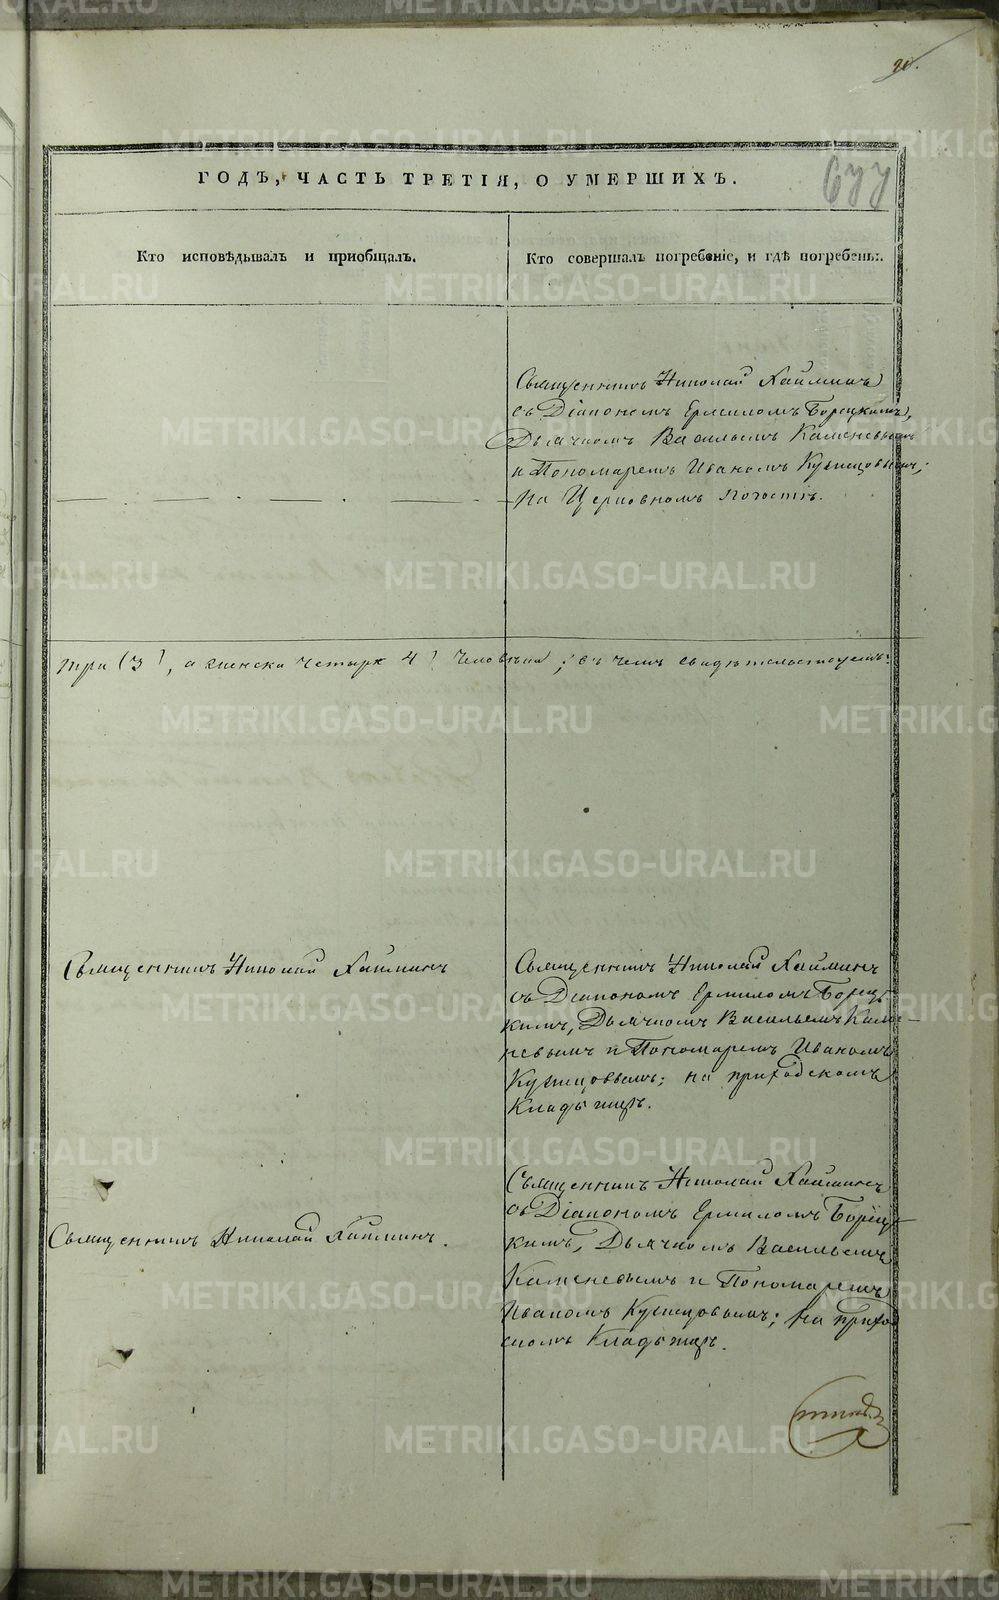 20.
677
ГОДЪ, ЧАСТЬ ТРЕТІЯ, О УМЕРШИХЪ.
Кто исповѣдывалъ и приобщалъ.
Кто совершалъ погребеніе, и гдѣ погребены.
Священникъ Николай Хайминъ
съ Діакономъ Ермиломъ Борецкимъ,
Дьячкомъ Васильемъ Каменевымъ
и Пономаремъ Иваномъ Кузнецовымъ;
на Церковномъ Погостѣ.
три (3), а женска четыре 4) Человѣка; въ чемъ свидѣтельствуемъ:
Священникъ Николай Хайминъ
Священникъ Николай Хайминъ
съ Діакономъ Ермиломъ Борец-
кимъ, Дьячкомъ Васильемъ Каме-
невымъ и Пономаремъ Иваномъ
Кузнецовымъ; на приходскомъ
Кладбищѣ.
Священникъ Николай Хайминъ.
Священникъ Николай Хайминъ
съ Діакономъ Ермиломъ Борец-
кимъ, Дьячкомъ Васильемъ
Каменевымъ и Пономаремъ
Иваномъ Кузнецовымъ; на приход
скомъ Кладбищѣ.
METRIKI.GASO-URAL.RU